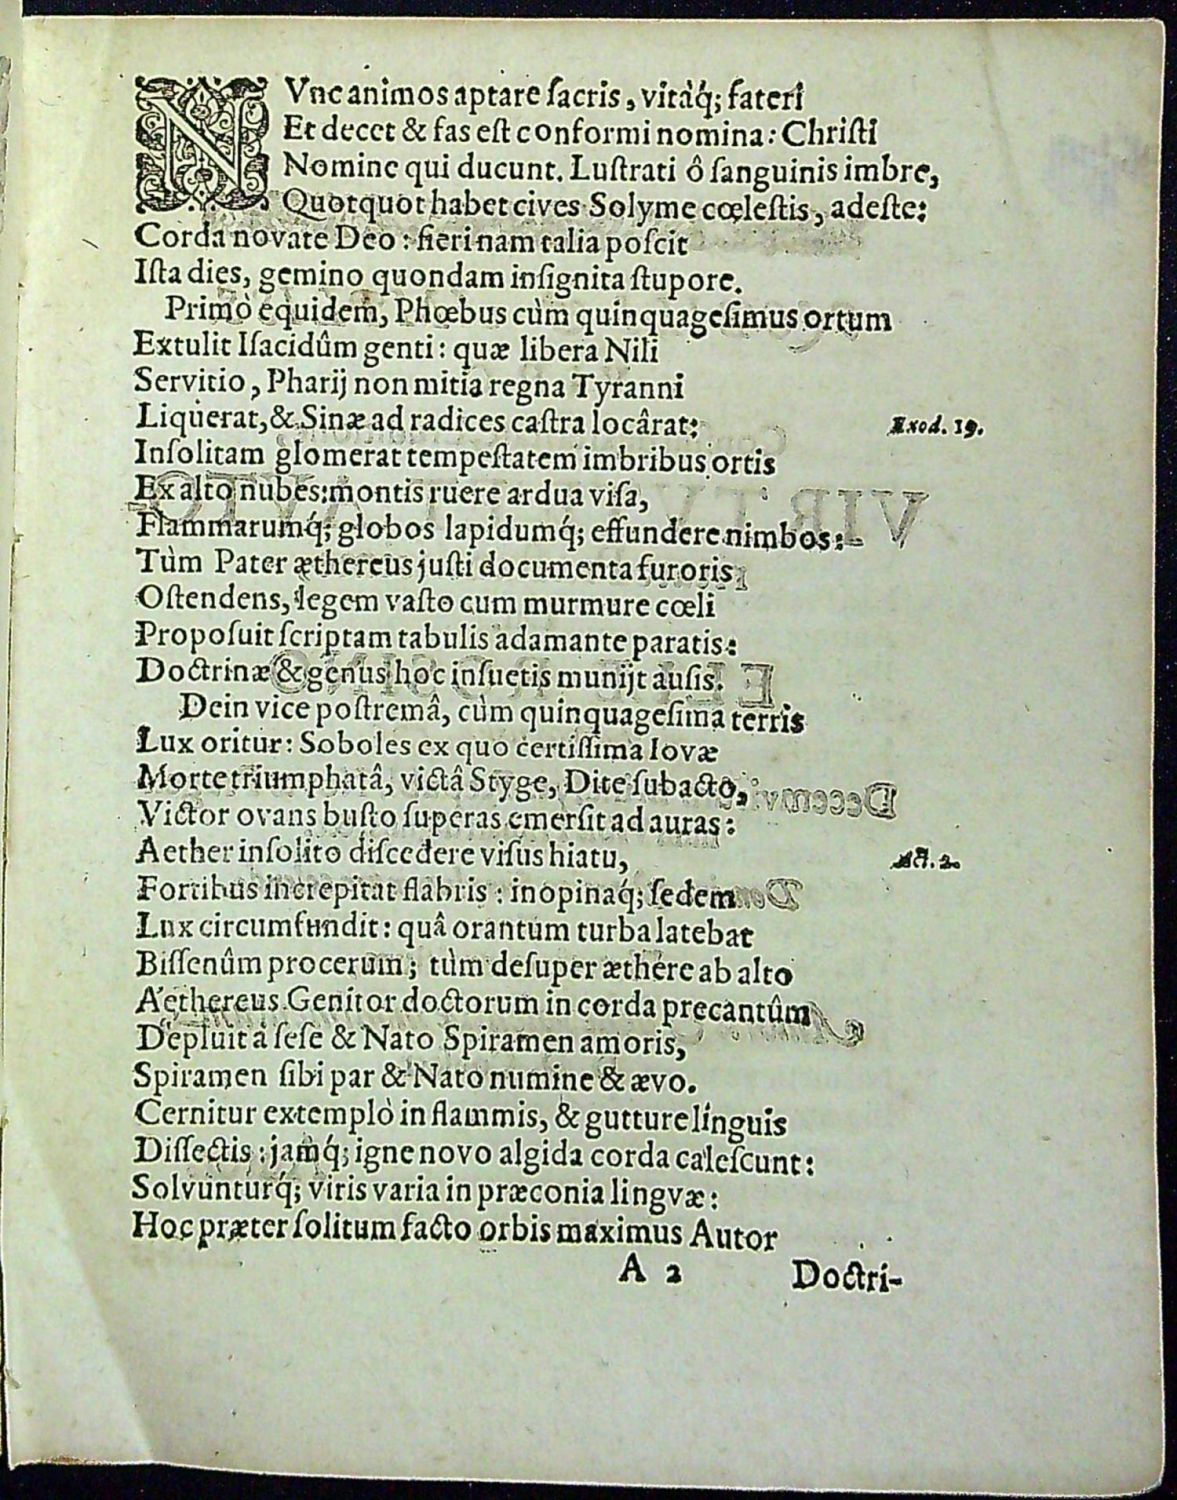 NVnc animos aptare ſacris, vitàq́; fateri
Et decet & fas eſt conformi nomina: Chriſti
Nomine qui ducunt. Luſtrati ô ſanguinis imbre,
Quotquot habet cives Solyme cœleſtis, adeſte:
Corda novate Deo: fieri nam talia poſcit
Iſta dies, gemino quondam inſignita ſtupore.
Primò equidem, Phœbus cùm quinquageſimus ortum
Extulit Iſacidûm genti: quæ libera Nili
Servitio, Pharij non mitia regna Tyranni
Liquerat, & Sinæ ad radices caſtra locârat:
Exod. 19.
Inſolitam glomerat tempeſtatem imbribus ortis
Ex alto nubes: montis ruere ardua viſa,
Flammarumq́; globos lapidumq́; effundere nimbos:
Tùm Pater æthereus juſti documenta furoris
Oſtendens, legem vaſto cum murmure cœli
Propoſuit ſcriptam tabulis adamante paratis:
Doctrinæ & genus hoc inſuetis munijt auſis.
Dein vice poſtremâ, cùm quinquageſima terris
Lux oritur: Soboles ex quo certiſſima Iovæ
Morte triumphatâ, victâ Styge, Dite ſubacto,
Victor ovans buſto ſuperas emerſit ad auras:
Aether inſolito diſcedere viſus hiatu,
Act. 2.
Fortibus increpitat flabris: inopinaq́; ſedem
Lux circumfundit: quâ orantum turba latebat
Biſſenûm procerum; tùm deſuper æthere ab alto
Aethereus Genitor doctorum in corda precantûm
Depluit à ſeſe & Nato Spiramen amoris,
Spiramen ſibi par & Nato numine & ævo.
Cernitur extemplò in flammis, & gutture linguis
Diſſectis: jamq́; igne novo algida corda caleſcunt:
Solvunturq́; viris varia in præconia lingvæ:
Hoc præter ſolitum facto orbis maximus Autor
A 2
Doctri-